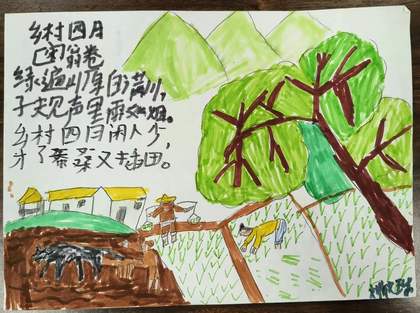 乡村四月
翁卷
绿遍山原白满川,
子规声里雨如烟。
乡村四月闲人少,
才了蚕桑又插田。